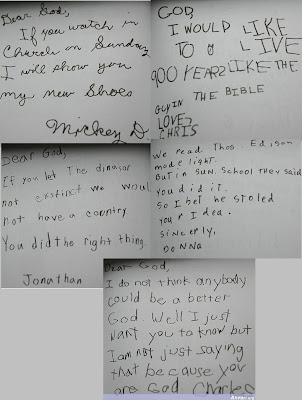 Dear God,
If you watch in
Church on Sunday
I will show you
my new Shoes
Mickey D.
GOD,
I WOULD LIKE
TO LIVE
900 YEARS LIKE THE
GUY IN THE BIBLE
LOVE,
CHRIS
Dear God,
If you let the dinasor
not exstinct we would
not have a country
You did the right thing.
Jonathan
We read Thos. Edison
made light.
But in Sun. School they said
you did it.
So I bet he stoled
your Idea.
Sincerly,
Donna
Dear God,
I do not think anybody
could be a better
God. Well I just
want you to know but
I am not just saying
that because you
are God. Charles